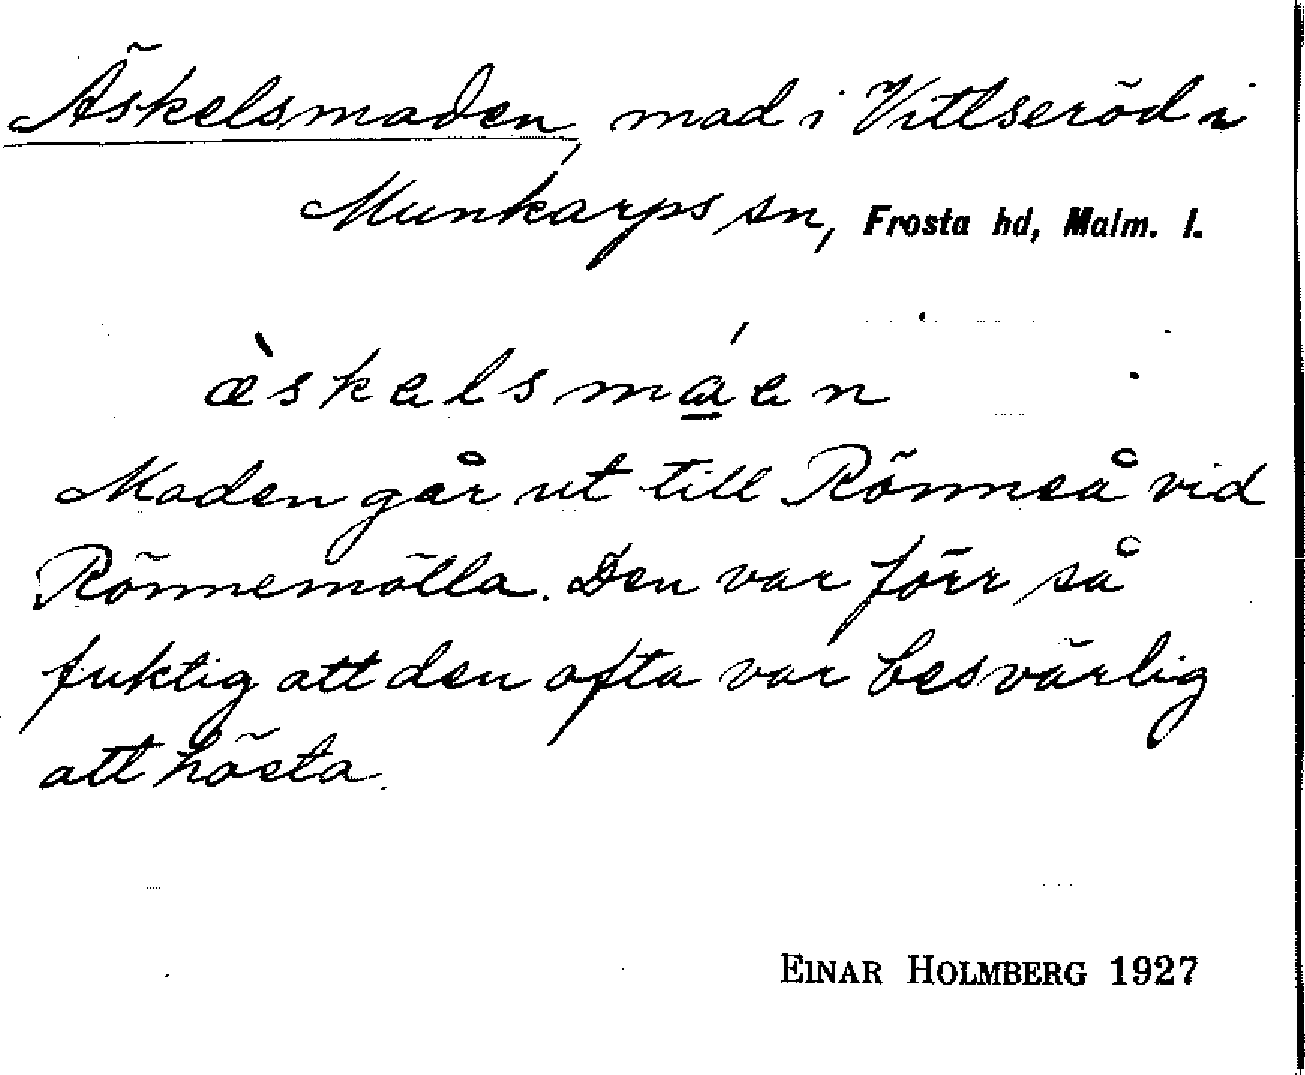 Äskelsmaden, mad i Vittseröd i
Munkarps sn, Frosta hd, Malm. l.
æ̀skəlsmáən
Maden går ut till Rönneå vid
Rönnemölla. Den var förr så
fuktig att den ofta var besvärlig
att hösta.
EINAR HOLMBERG 1927